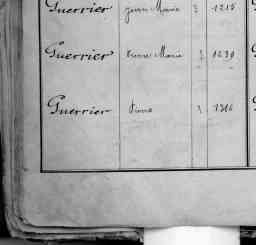 Guerrier Jean Marie 3 1215
Guerrier Marie 3 1239
Guerrier 3 1316